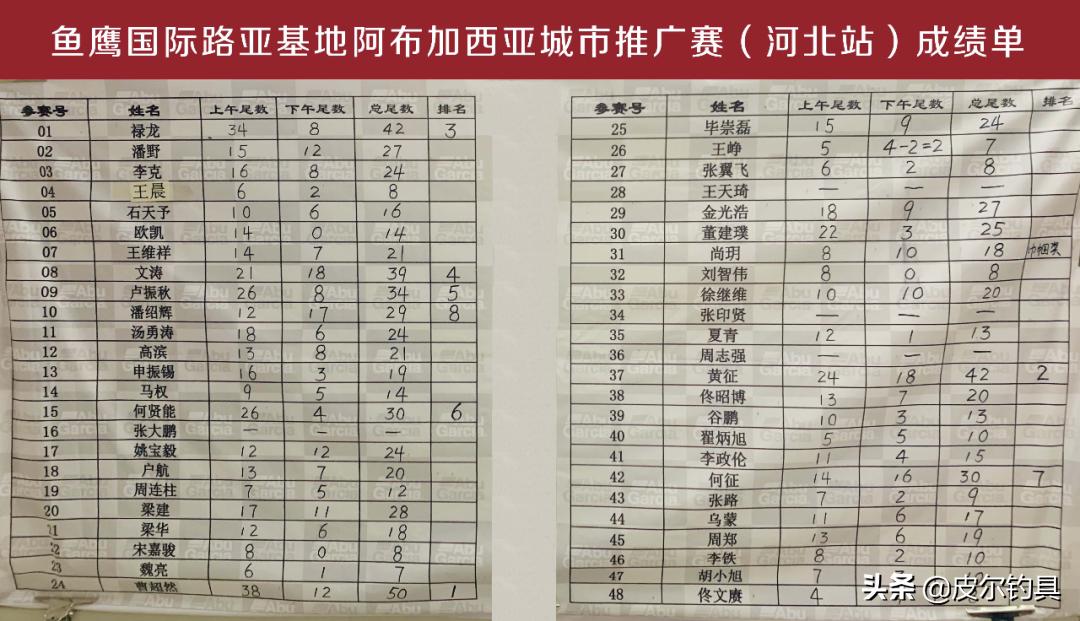 鱼鹰国际路亚基地阿布加西亚城市推广赛（河北站）成绩单
参赛号 姓名 上午尾数 下午尾数 总尾数 排名
01 禄龙 34 8 42 3
02 潘野 15 12 27
03 李克 16 8 24
04 王晨 6 2 8
05 石天予 10 6 16
06 欧凯 14 0 14
07 王维祥 14 7 21
08 文涛 21 18 39 4
09 卢振秋 26 8 34 5
10 潘绍辉 12 17 29 8
11 汤勇涛 18 6 24
12 高滨 13 8 21
13 申振锡 16 3 19
14 马权 9 5 14
15 何贤能 26 4 30 6
16 张大鹏 — — —
17 姚宝毅 12 12 24
18 户航 13 7 20
19 周连柱 7 5 12
20 梁建 17 11 28
21 梁华 12 6 18
22 宋嘉骏 8 0 8
23 魏亮 6 1 7
24 曹超然 38 12 50 1
参赛号 姓名 上午尾数 下午尾数 总尾数 排名
25 毕崇磊 15 9 24
26 王峥 5 4-2=2 7
27 张翼飞 6 2 8
28 王天琦 — — —
29 金光浩 18 9 27
30 董建璞 22 3 25
31 尚玥 8 10 18 巾帼奖
32 刘智伟 8 0 8
33 徐继维 10 10 20
34 张印贤 — — —
35 夏青 12 1 13
36 周志强 — — —
37 黄征 24 18 42 2
38 佟昭博 13 7 20
39 谷鹏 10 3 13
40 翟炳旭 5 5 10
41 李政伦 11 4 15
42 何征 14 16 30 7
43 张路 7 2 9
44 乌蒙 11 6 17
45 周郑 13 6 19
46 李铁 8 2 10
47 胡小旭 7
48 佟文赓 4
头条 @皮尔钓具